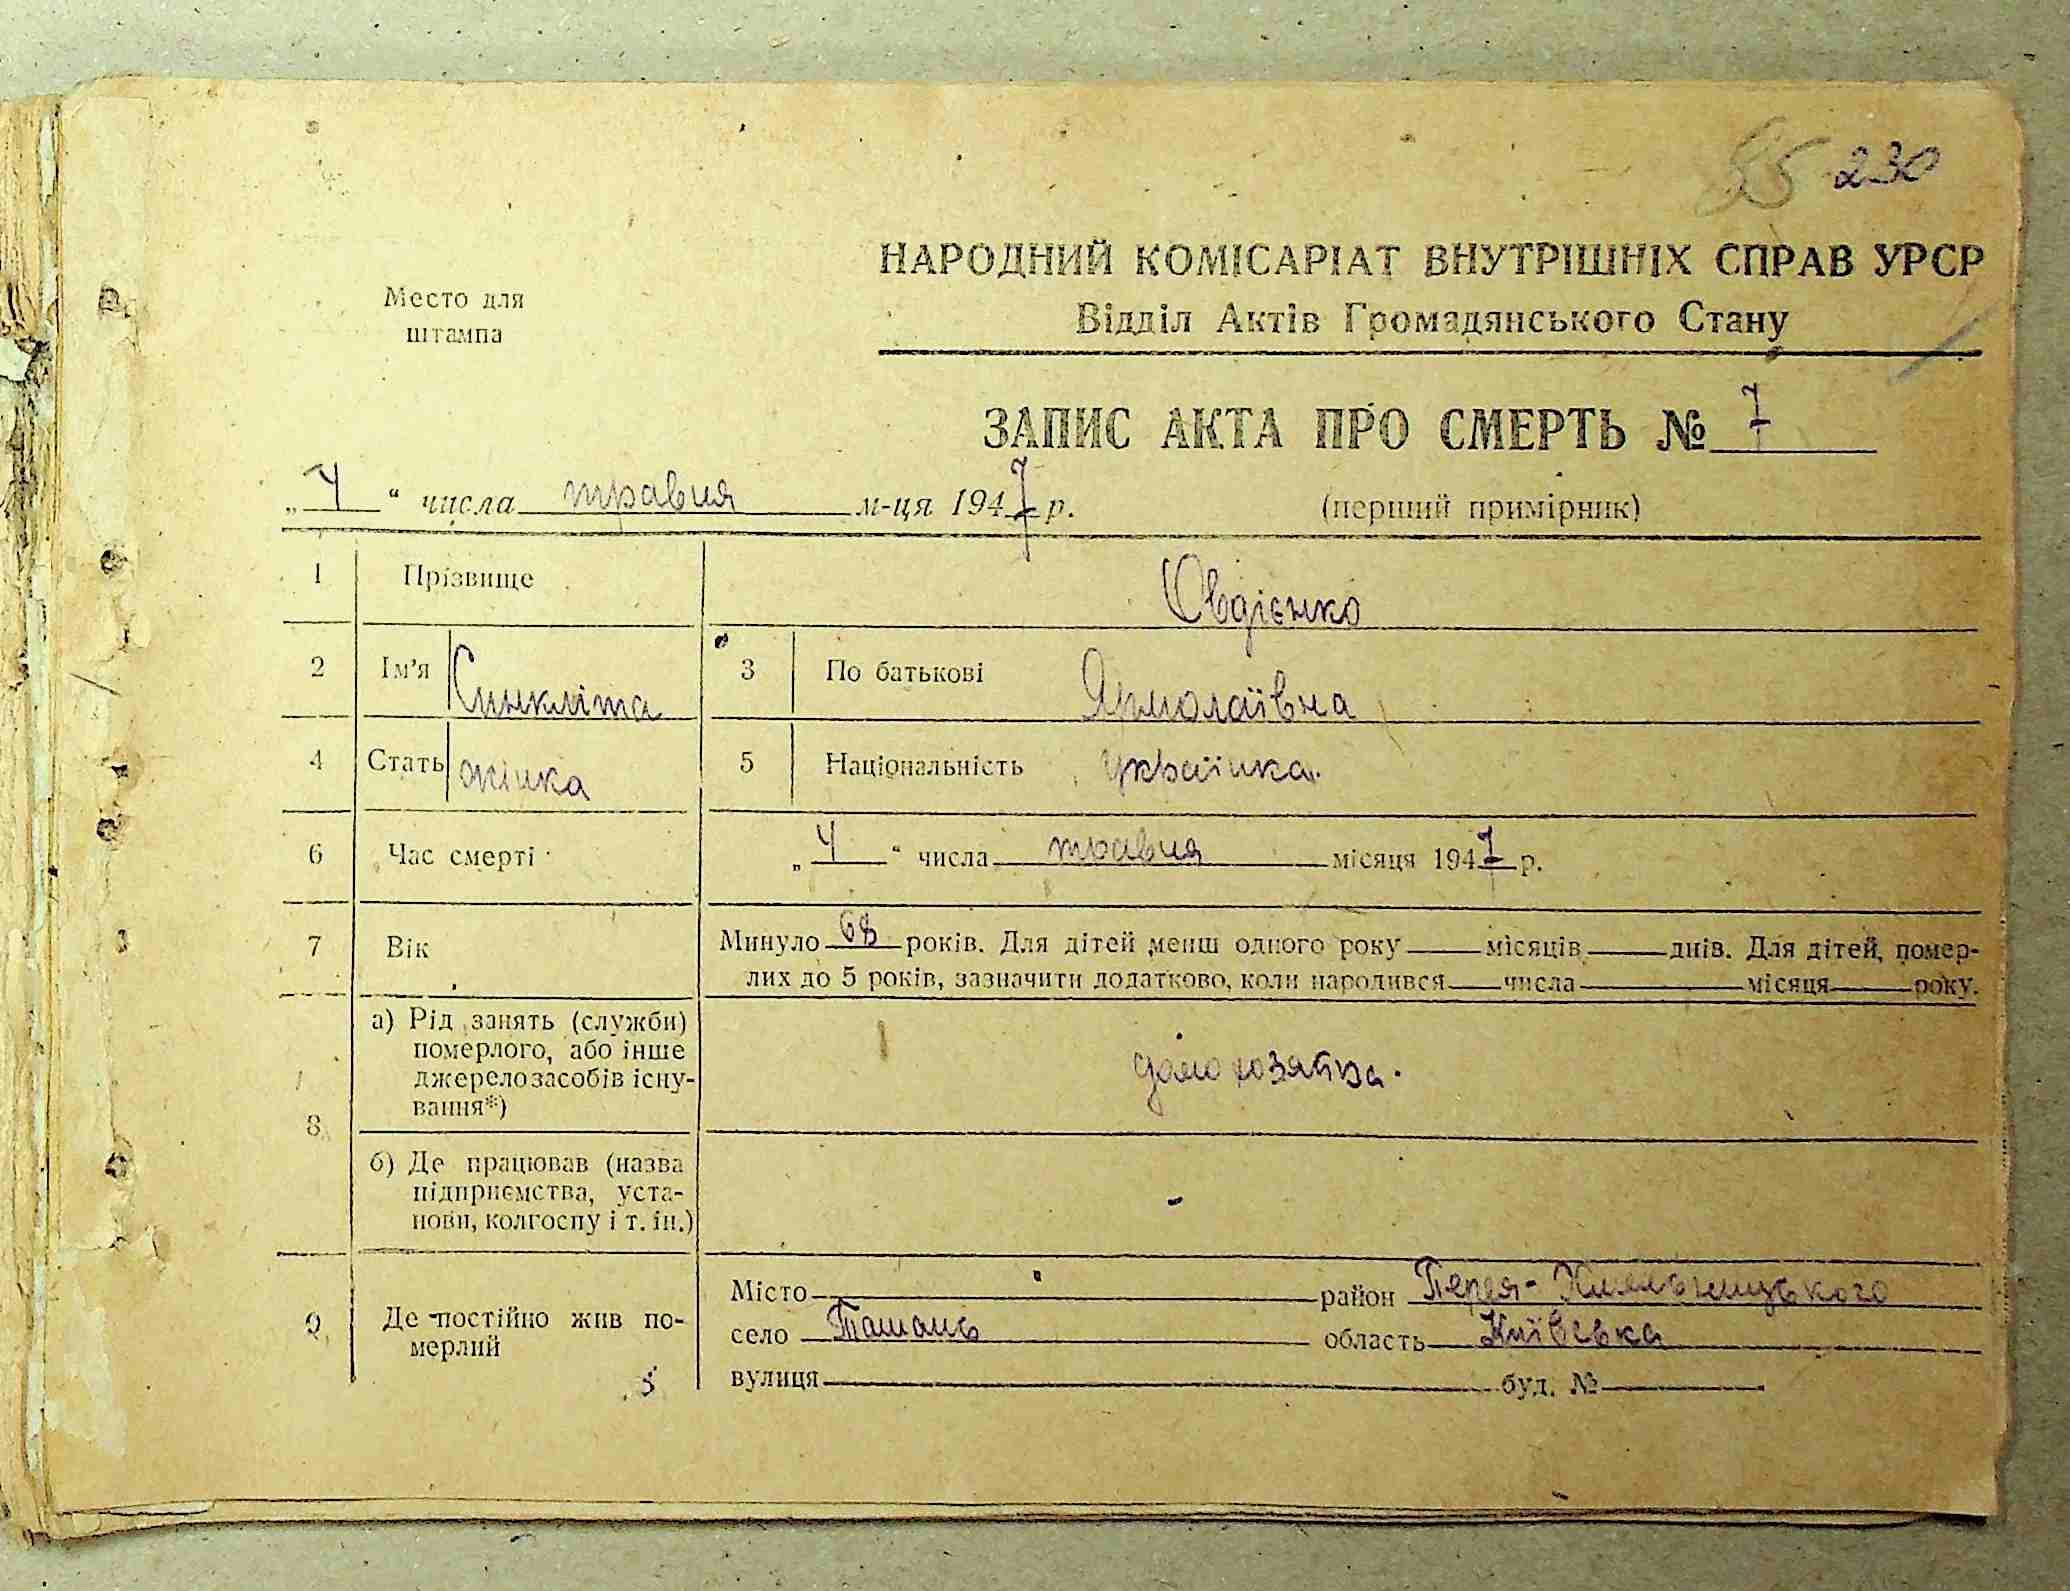 95 230
НАРОДНИЙ КОМІСАРІАТ ВНУТРІШНІХ СПРАВ УРСР
Відділ Актів Громадянського Стану
Место для
штампа
ЗАПИС АКТА ПРО СМЕРТЬ № 7
„4“ числа травня м-ця 1947 р. (перший примірник)
1 Прізвище Овдієнко
2 Ім'я Синкліта 3 По батькові Ярмолаївна
4 Стать жінка 5 Національність українка.
6 Час смерті „4“ числа травня місяця 1947 р.
7 Вік Минуло 68 років. Для дітей менш одного року місяців днів. Для дітей, помер-
лих до 5 років, зазначити додатково, коли народився числа місяця року.
8 а) Рід занять (служби)
померлого, або інше
джерело засобів існу-
вання*)
домохозяйка.
б) Де працював (назва
підприємства, уста-
нови, колгоспу і т. ін.)
-
9 Де постійно жив по-
мерлий
Місто район Перея-Хмельницького
село Ташань область Київська
вулиця буд. №